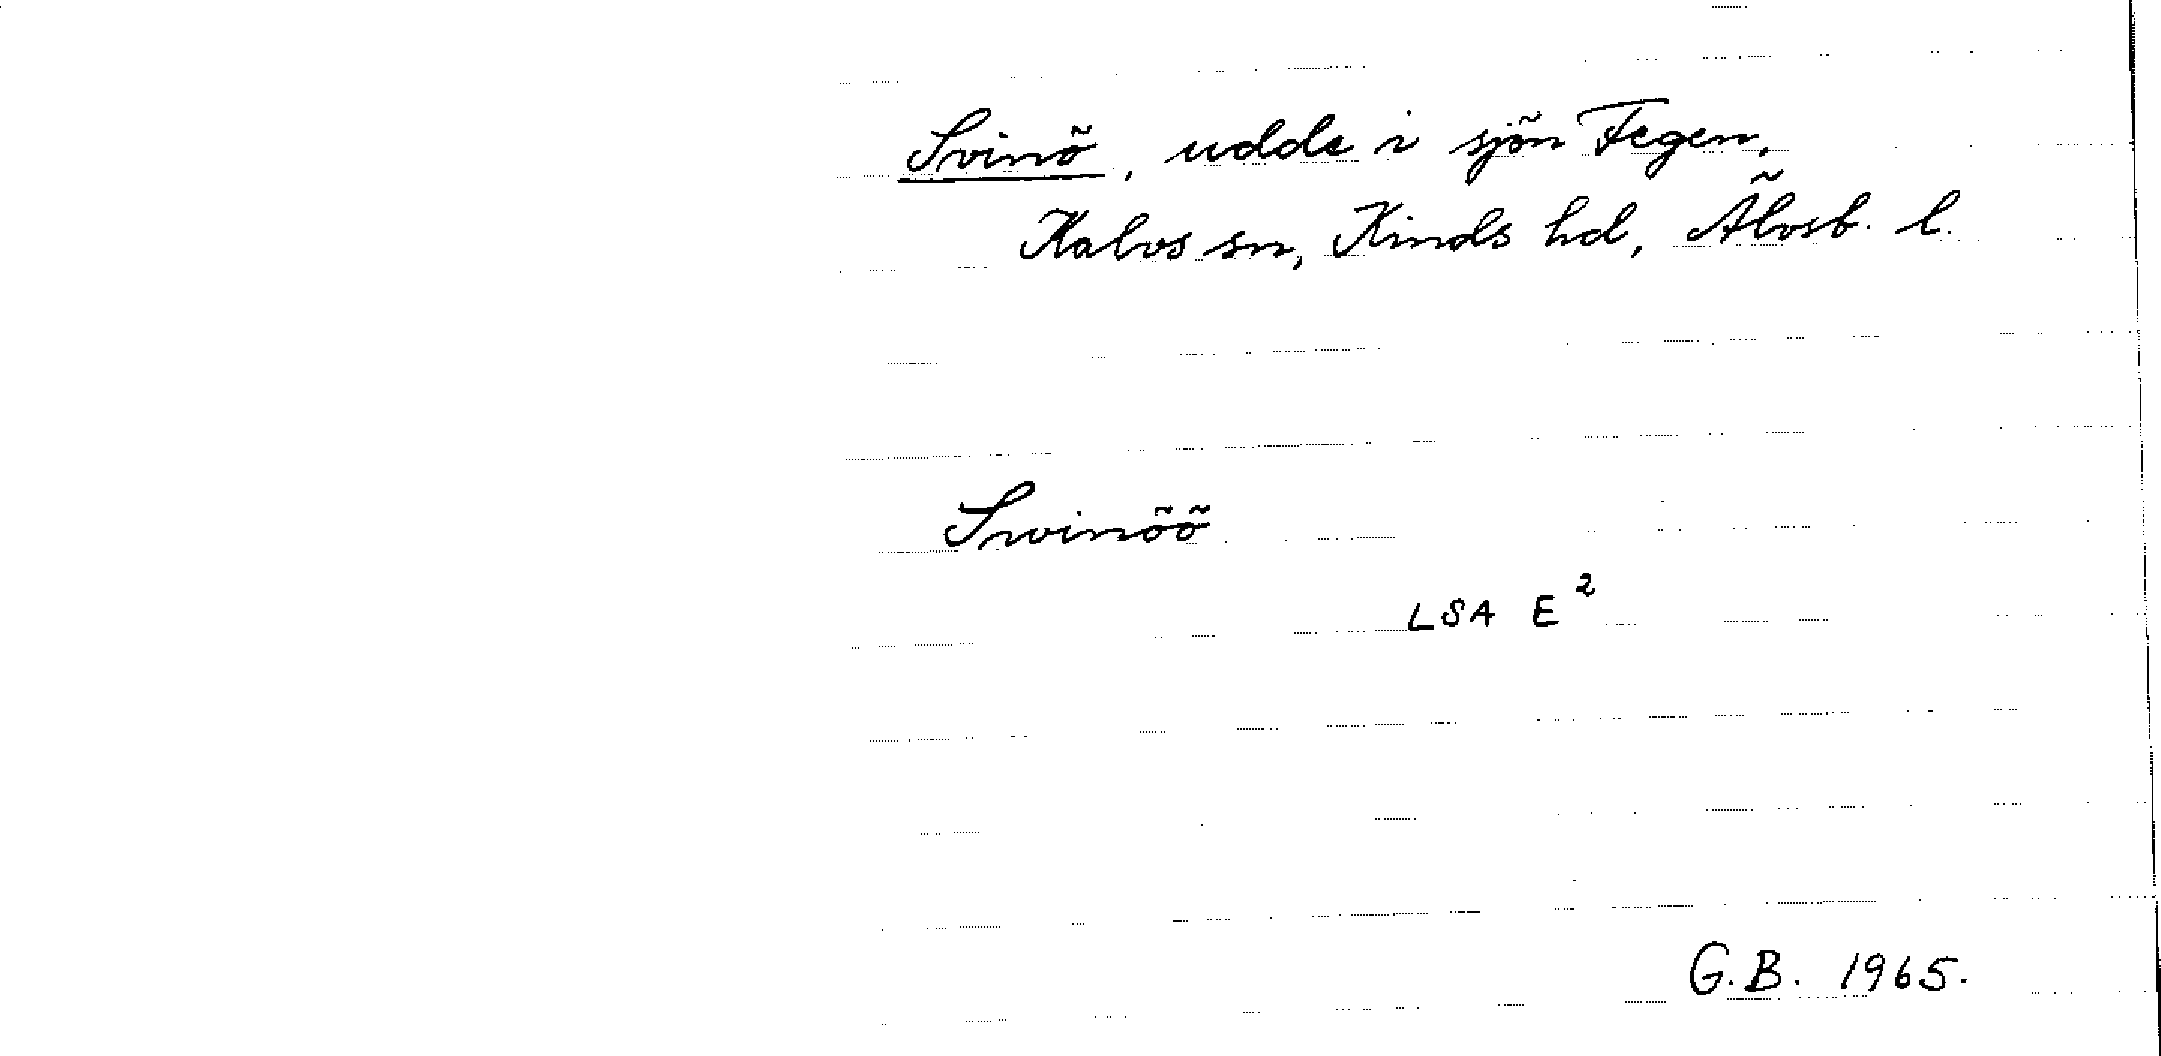 Svinö, udde i sjön Fegen,
Kalvs sn, Kinds hd, Älvsb. l.
Swinöö
LSA E²
G.B. 1965.